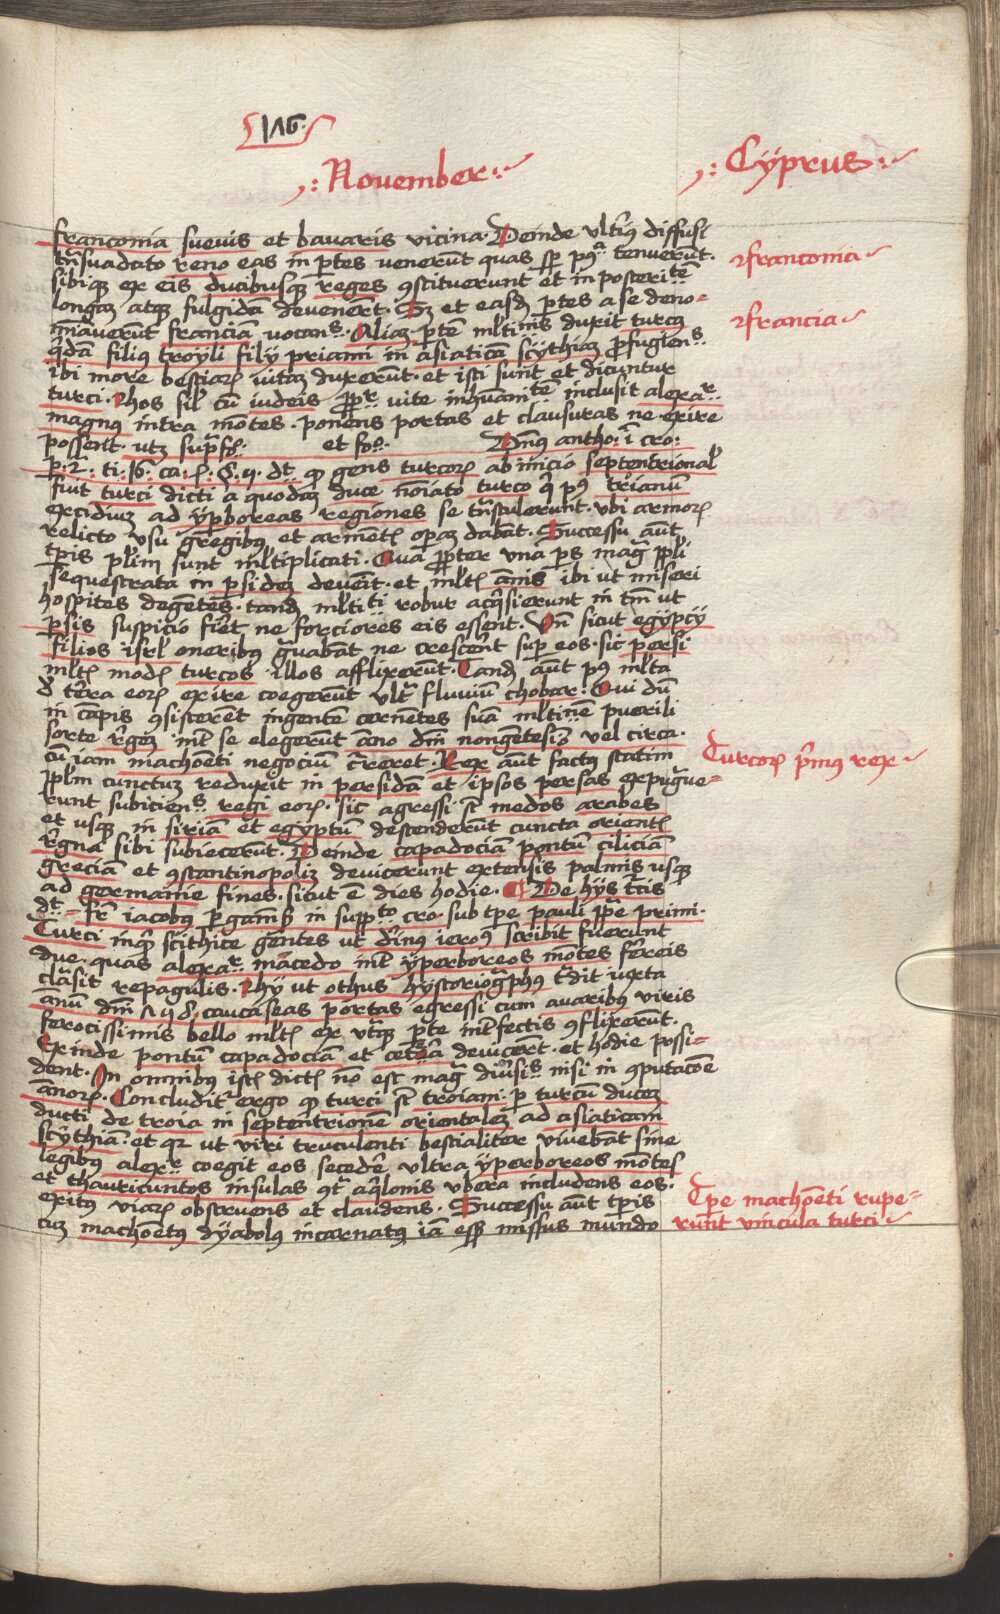 1Λ6.
.: November :.
.: Cÿprus :.
franconia suevis et bavaris vicina. Deinde vlteriꝰ diffusi
trāsvadato reno eas in ptes venerūt quas sp pꝰ tenuerūt.
franconia
sibiqꝫ ex eis ducibusqꝫ reges ꝯstituerunt et in posteritē
longaꝫ atqꝫ fulgidam devenerūt. Sꝫ et easdē ptes a se deno-
minaverūt franciā vocans. Aliaꝫ ptē mltinis duxit turcꝰ
francia
qdā filiꝰ troyli filÿ priami in asiaticā scÿthiaꝫ profugiens.
ibi more bestiaꝝ vitaꝫ duxerūt. et isti sunt et dicuntur
turci. Hos sil cū iudeis ppr vite inhūanitē inclusit alexar
magnꝰ intra mōtes. ponens portas et clausuras ne exire
possent. utꝫ supra fo. et fo. Dn̄s antho. ī cro.
p. 2. ti. 16. ca. ꝭ. §. 4. dt ꝙ gens turcoꝝ ab inicio septentrional
fuit turci dicti a quodaꝫ duce noīato turco q̄ pꝰ troianū
excidiuꝫ ad ÿpboreas regiones se trāstulerunt. vbi armoꝝ
relicto vsu gregibꝰ et armētꝭ operaꝫ dabāt. Successu aūt
tpris plim sunt mltiplicati. Quā ppter vna ps mag ppli
sequestrata in psideꝫ devēit. et mltꝭ annis ibi ut miseri
hospites degētes. tandē mltiti robur acqsierunt in tm ut
psis suspicio fieret ne forciores eis essent. Vn̄ sicut egÿpcÿ
filios isrl oneribꝰ gravabāt ne crescerēt sup eos. sic persi
mltꝭ modꝭ turcos illos afflixerūt. Tandē aūt pꝰ mlta
d terra eoꝝ exire coegerunt vltra fluviū chobar. Qui dū
in cāpis ꝯsisterēt ingentē cernētes suā mltinē puerili
sorte regeꝫ int se elegerūt āno dn̄i nongētesiō vel circa.
cū iam machōeti negociū creret. Rex aūt factꝰ statim
Turcoꝝ pimꝰ rex
pplm cunctuꝫ reduxit in persidā et ipsos persas expugave-
runt subiciens regi eoꝝ. sic agressi st medos arabes
et usqꝫ in siriā et egÿptū descenderūt cuncta orientꝭ
regna sibi subiecerūt. Deinde capadociā pontū ciliciā
greciā et ꝯstantinopoliꝫ devicerunt extensis palmis usqꝫ
ad germanie fines. sicut ē dies hodie. De hÿs tcis
dt fr iacobꝰ pgamꝰ in supp̄to cro. sub tpe pauli ppe primi.
Turci inqt scithice gentes ut divinꝰ ieroꝰ scribit fuerunt
due. quas alexar macedo int ÿperboreos mōtes ferreis
clausit repagulis. Hÿ ut othus hÿstoriographꝰ tdit iuxta
annū dn̄i Λ48. caucaseas portas egressi cum avaribꝰ viris
ferocissimis bello mltꝭ ex vtraqꝫ pte intfectis ꝯflixerūt.
Exinde pontū capadociā et cetera devicerūt. et hodie possi-
dent. In omnibus istꝭ dictꝭ nō est mag diversis nisi in ꝯputacōe
annoꝝ. Concluditr ergo ꝙ turci st troiani. p turcū duceꝫ
ducti de troia in septentrionē orientaleꝫ ad asiaticam
scÿthiā. et qr ut viri truculenti bestialiter vivebāt sine
legibꝰ alexr coegit eos secedē vltra ÿperboreos mōtes
et thauricuntos insulas ꝯt aqlonis vbera includens eos.
exitꝰ viaꝝ obstruens et claudens. Successu aūt tpris
Tpe machōeti rupe-
cuꝫ machōetꝰ dÿabolꝰ incarnatꝰ iā esset missus mundo
runt vincula turci